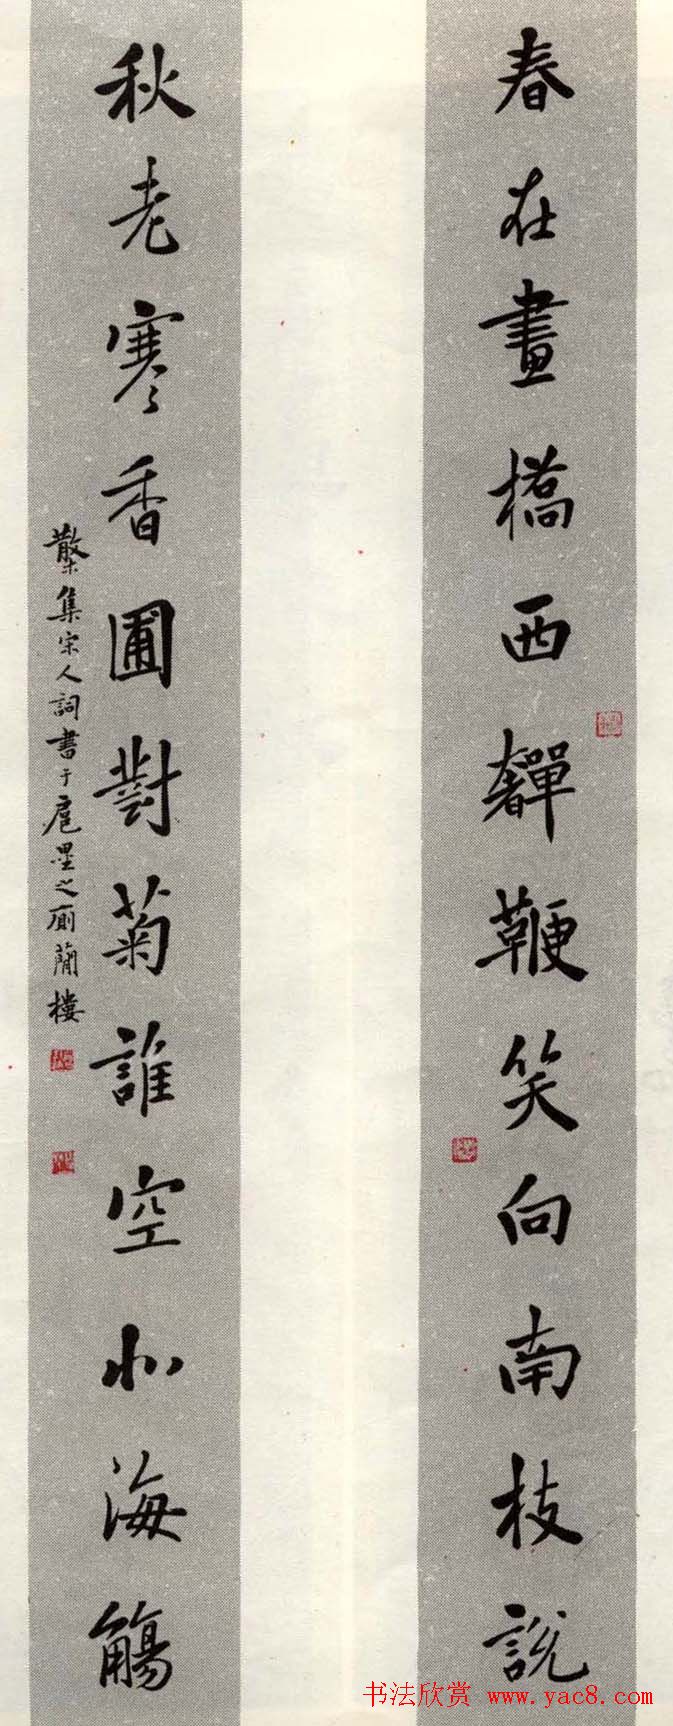 春在畫橋西韗鞭笑向南枝說
秋老寒香圃對菊誰空北海觴
集宋人詞書于扈壘之廟蕳樓
书法欣赏 www.yac8.com